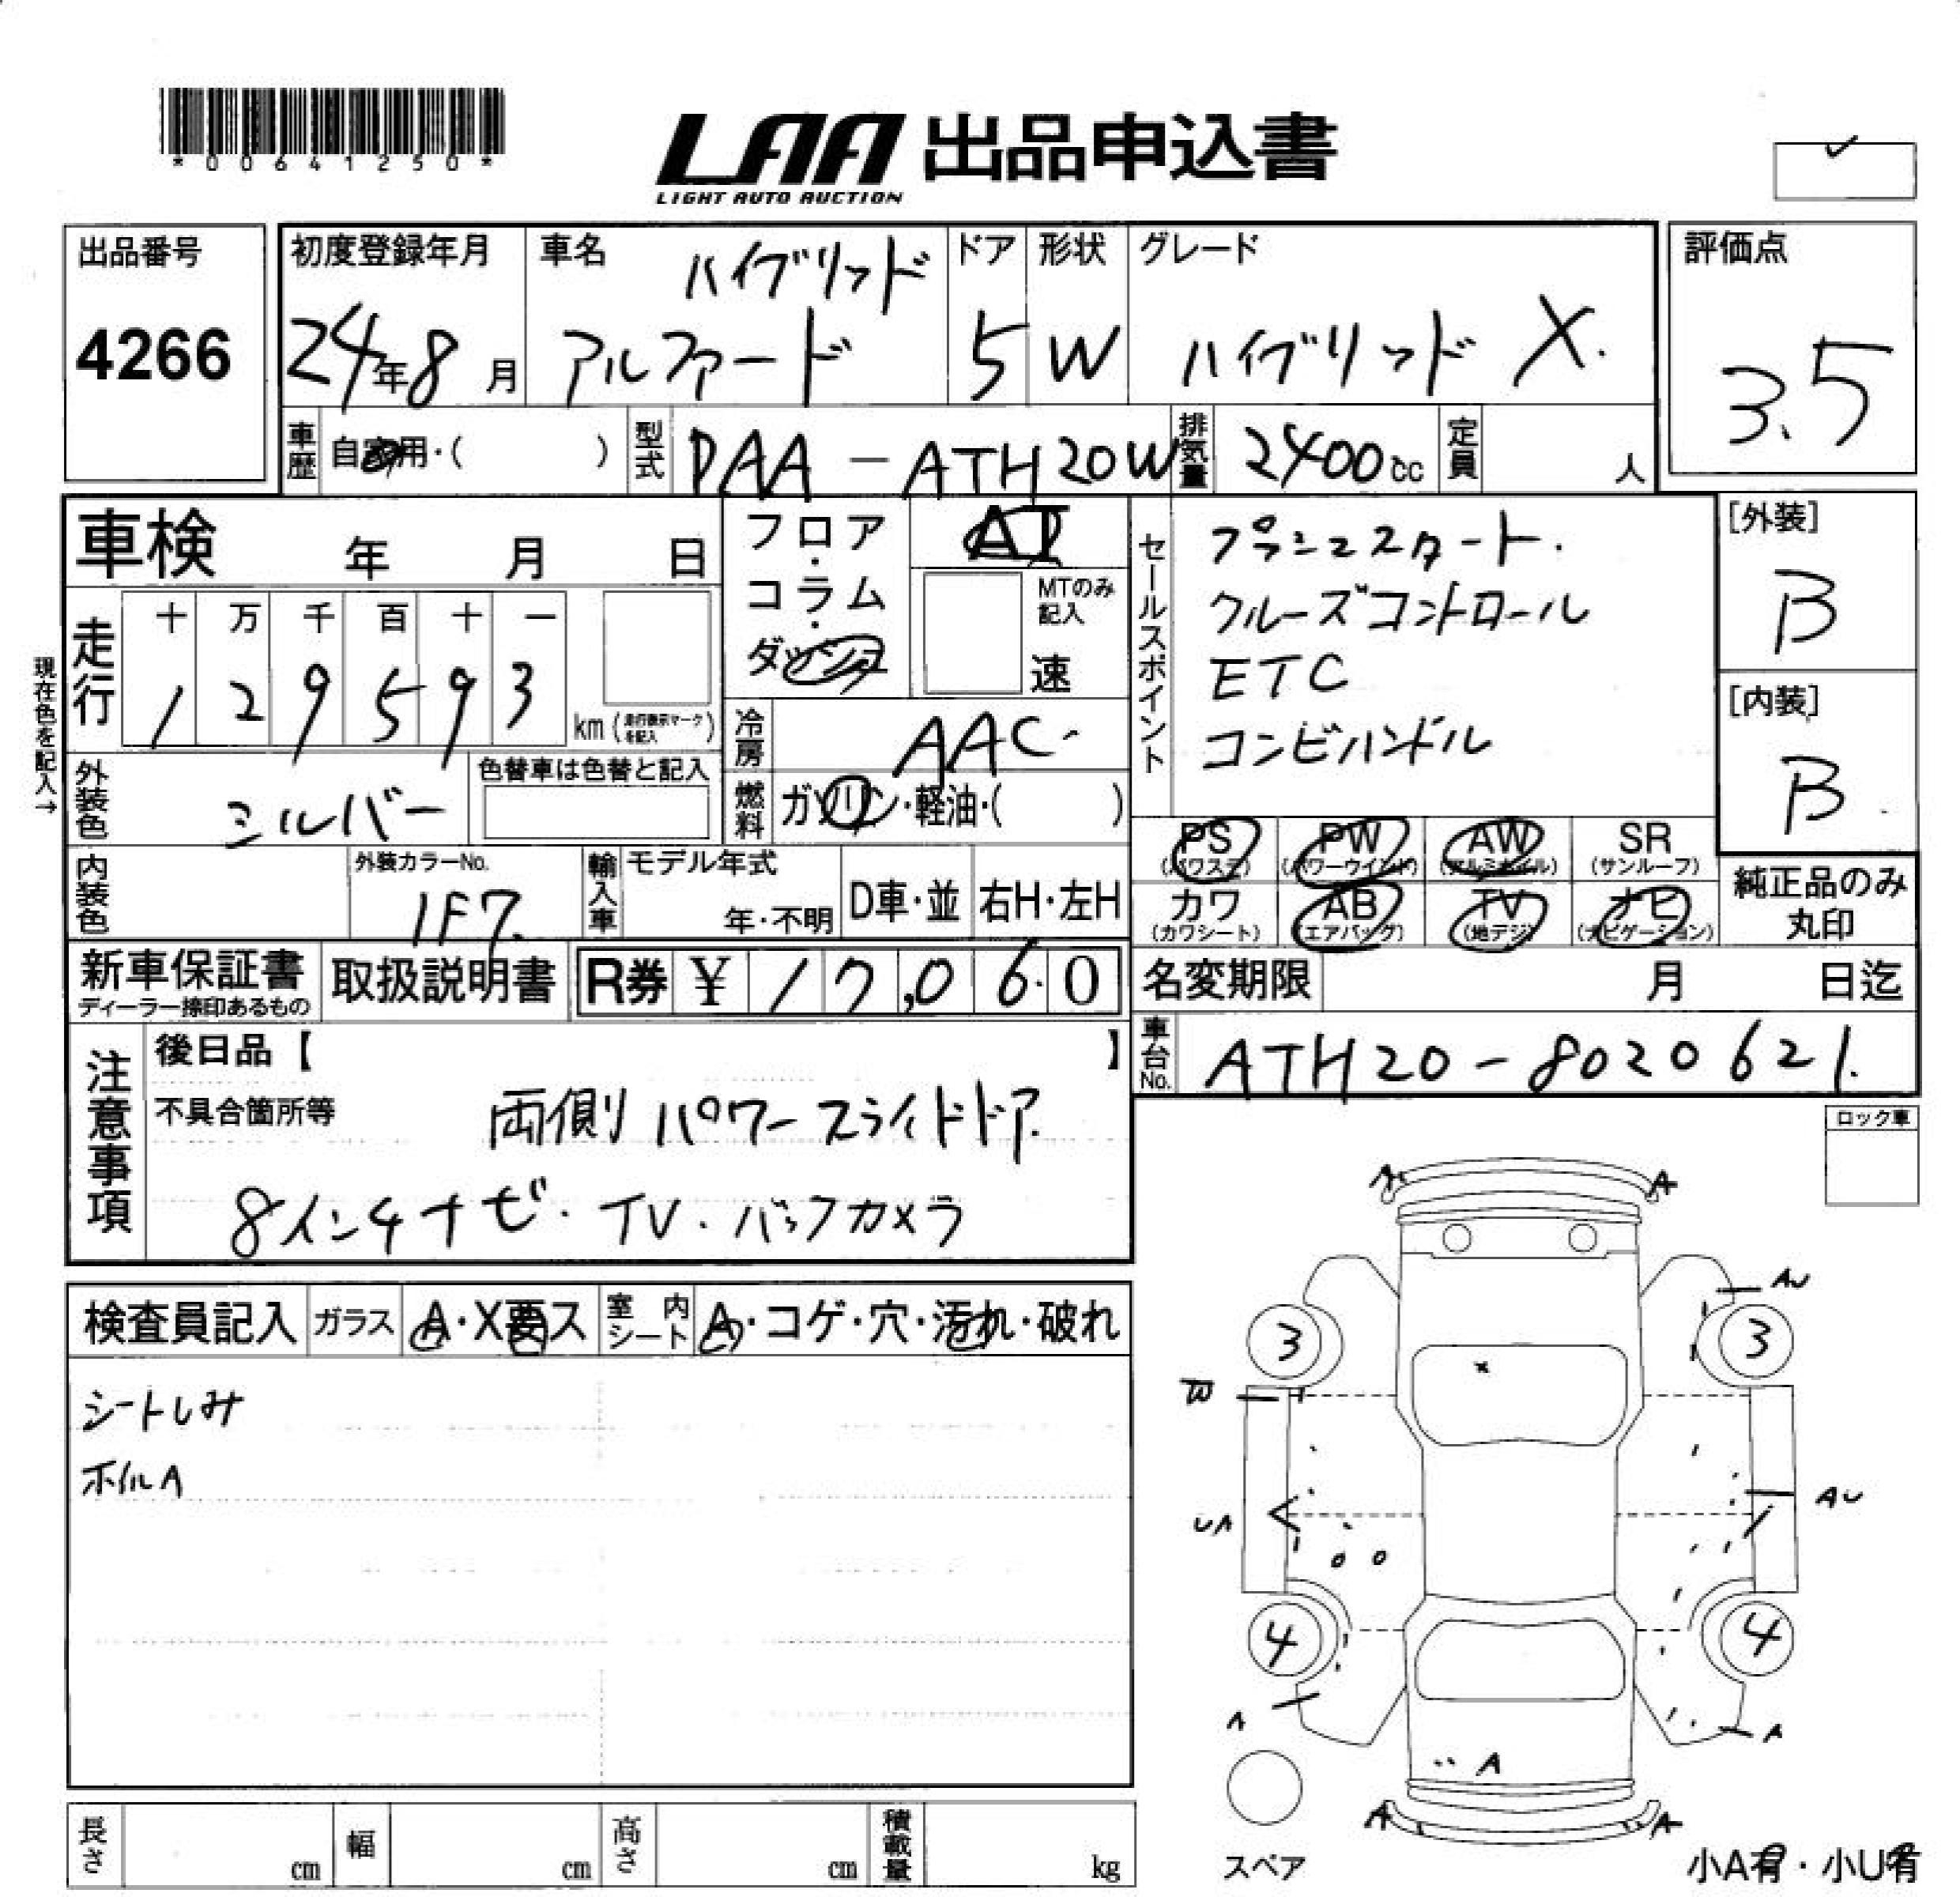 *00641250*
LAA 出品申込書
LIGHT AUTO AUCTION
出品番号
4266
初度登録年月
24年8月
車名
ハイブリッド
アルファード
ドア
5
形状
W
グレード
ハイブリッド X.
評価点
3.5
車歴
自家用・( )
型式
DAA-ATH20W
排気量
2400cc
定員
人
車検 年 月 日
フロア・コラム・ダッシュ
AT
MTのみ記入
速
セールスポイント
プッシュスタート.
クルーズコントロール
ETC
コンビハンドル
[外装]
B
[内装]
B
現在色を記入→
走行
十 万 千 百 十 一
1 2 9 5 9 3
km (走行表示マークを記入)
冷房
AAC
外装色
シルバー
色替車は色替と記入
燃料
ガソリン・軽油・( )
PS (パワステ)
PW (パワーウインド)
AW (アルミホイル)
SR (サンルーフ)
カワ (カワシート)
AB (エアバッグ)
TV (地デジ)
ナビ (ナビゲーション)
純正品のみ丸印
内装色
外装カラーNo.
1F7.
輸入車
モデル年式
年・不明
D車・並
右H・左H
新車保証書
ディーラー捺印あるもの
取扱説明書
R券 ¥ 17,060
名変期限 月 日迄
車台No.
ATH20-8020621.
注意事項
後日品【 】
不具合箇所等
両側パワースライドドア.
8インチナビ・TV・バックカメラ
ロック車
検査員記入
ガラス
A・X要ス
室内シート
A・コゲ・穴・汚れ・破れ
シートしみ
ホイルA
A A
AU
3 3
W
AU
UA
4 4
A A
A
A A
スペア
小A有・小U有
長さ cm
幅 cm
高さ cm
積載量 kg